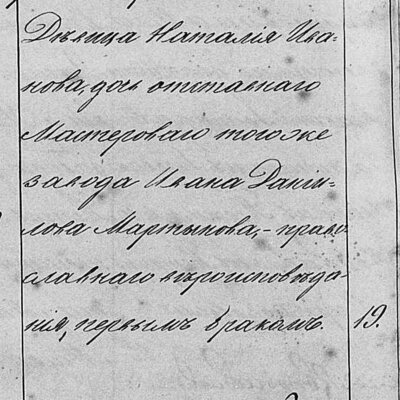 Дѣвица Наталія Ива-
нова, дочь отставнаго
Мастероваго тогоже
завода Ивана Даніи-
лова Мартынова, - право
славнаго вѣроисповѣда
нія, первымъ бракомъ. 19.